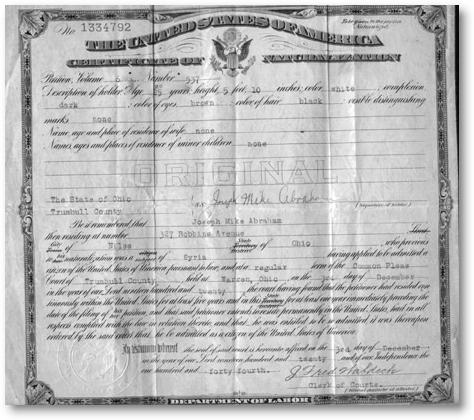 No. 1334792
To be given to the person Naturalized.
THE UNITED STATES OF AMERICA
CERTIFICATE OF NATURALIZATION
Petition, Volume 6 Number 537
Description of holder: Age, 25 years; height, 5 feet, 10 inches; color, white; complexion
dark; color of eyes, brown; color of hair, black; visible distinguishing
marks none
Name, age and place of residence of wife none
Names, ages and places of residence of minor children none
ORIGINAL
The State of Ohio
Trumbull County
Joseph Mike Abraham
(Signature of holder)
Be it remembered that Joseph Mike Abraham
then residing at number 327 Robbins Avenue
of Niles of Ohio, who previous
to his naturalization was a of Syria, having applied to be admitted a
citizen of the United States of America pursuant to law, and at a regular term of the Common Pleas
Court of Trumbull County held at Warren, Ohio on the day of December
in the year of our Lord nineteen hundred and twenty the court having found that the petitioner had resided con-
tinuously within the United States for at least five years and in this for at least one year immediately preceding the
date of the filing of his petition, and that said petitioner intends to reside permanently in the United States, had in all
respects complied with the law in relation thereto, and that he was entitled to be so admitted, it was thereupon
ordered by the said court that he be admitted as a citizen of the United States of America.
In testimony whereof the seal of said court is hereunto affixed on the 3rd day of December
in the year of our Lord nineteen hundred and twenty and of our Independence the
one hundred and forty fourth.
Clerk of Courts.
(Official character of attestor.)
DEPARTMENT OF LABOR